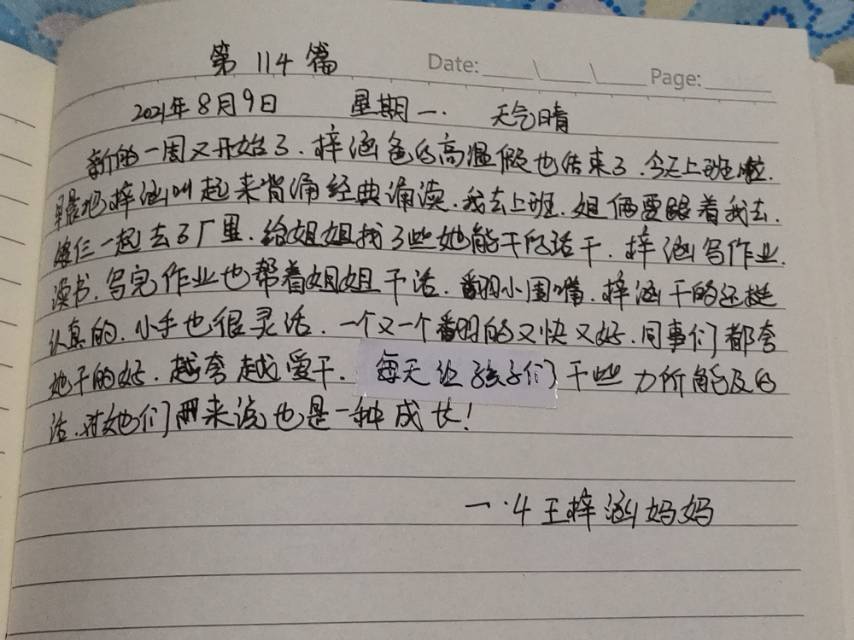 第114篇
Date: Page:
2021年8月9日 星期一. 天气晴
新的一周又开始了.梓涵爸的高温假也结束了.今天上班啦.
早晨把梓涵叫起来背诵经典诵读.我去上班.姐俩要跟着我去.
俺仨一起去了厂里.给姐姐找了些她能干的活干.梓涵写作业.
读书.写完作业也帮着姐姐干活.翻小围嘴.梓涵干的还挺
认真的.小手也很灵活.一个又一个翻的又快又好.同事们都夸
她干的好.越夸越爱干.每天让孩子们干些力所能及的
活.对她们来说也是一种成长!
一.4王梓涵妈妈